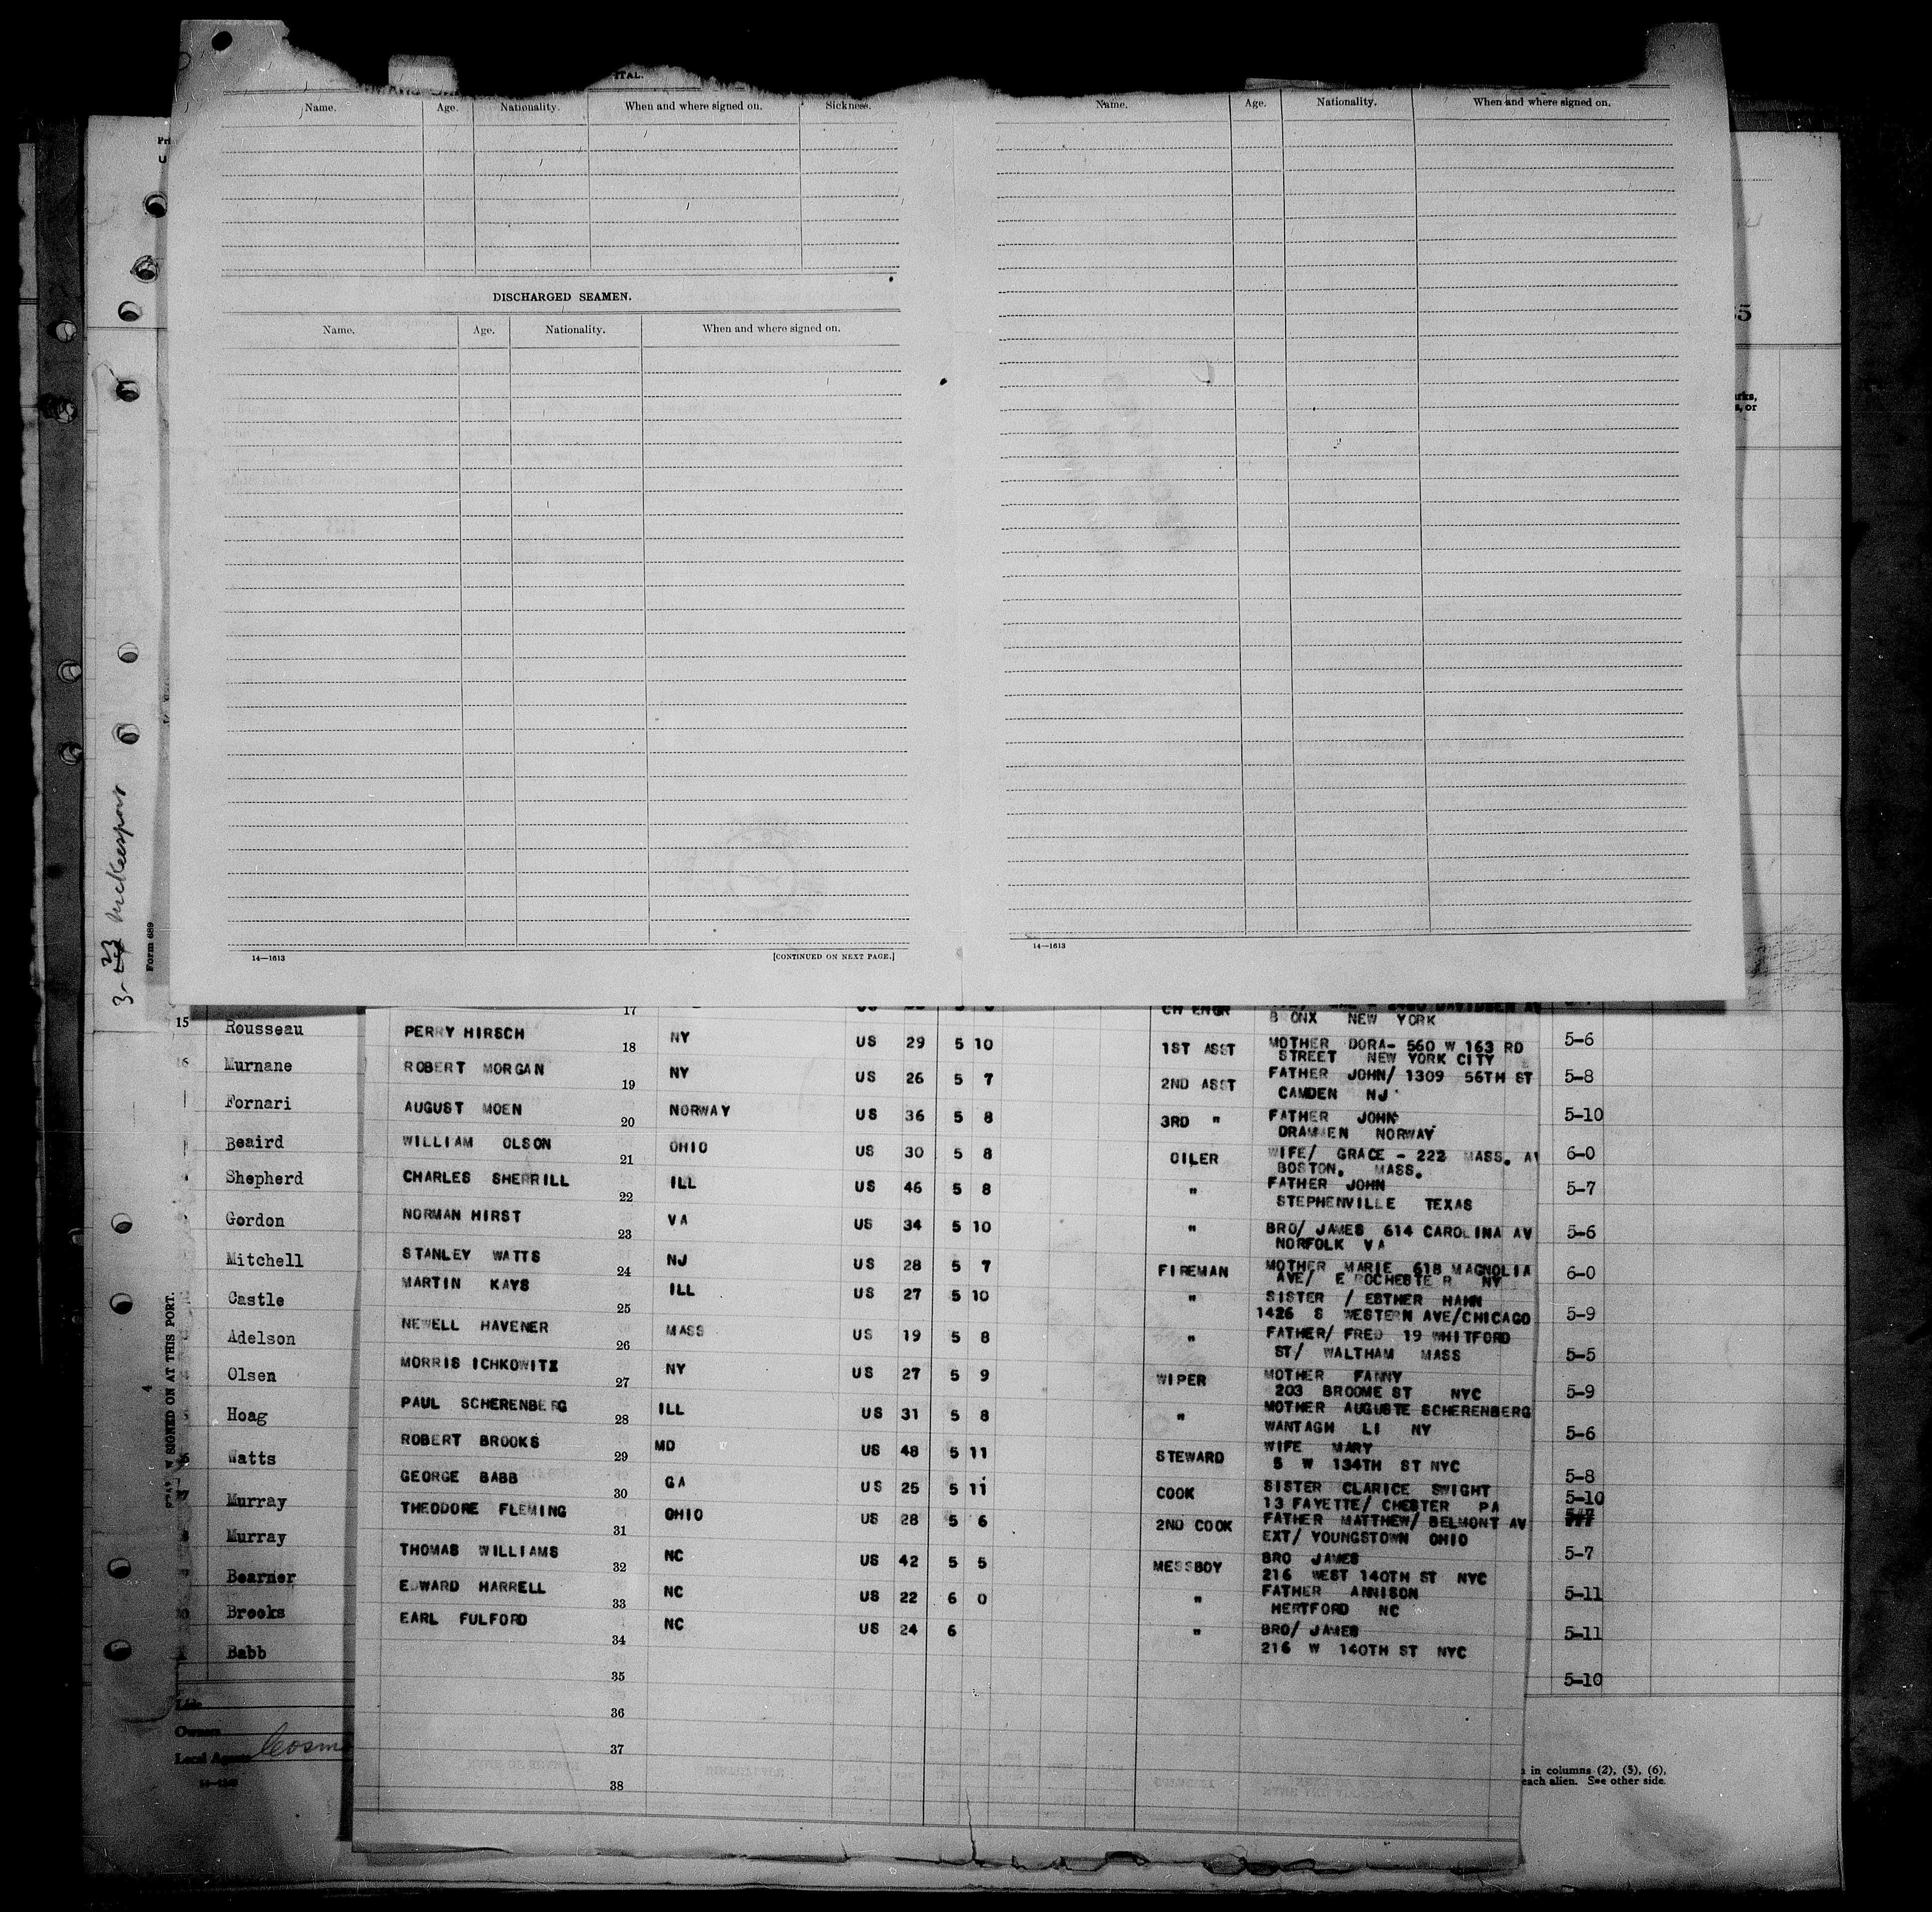 ITAL.
Name. Age. Nationality. When and where signed on. Sickness.
DISCHARGED SEAMEN.
Name. Age. Nationality. When and where signed on.
14—1613 [CONTINUED ON NEXT PAGE.]
Name. Age. Nationality. When and where signed on.
14—1613
3- 23 McKeesport
Form 689
W SIGNED ON AT THIS PORT.
4
15 Rousseau
16 Murnane
Fornari
Beaird
Shepherd
Gordon
Mitchell
Castle
Adelson
Olsen
Hoag
Watts
Murray
Murray
Bearner
Brooks
Babb
Owners
Local Agents Cosmo
17 CH ENGR
BRONX NEW YORK
PERRY HIRSCH 18 NY US 29 5 10 1ST ASST MOTHER DORA- 560 W 163 RD
STREET NEW YORK CITY
ROBERT MORGAN 19 NY US 26 5 7 2ND ASST FATHER JOHN/ 1309 56TH ST
CAMDEN NJ
AUGUST MOEN 20 NORWAY US 36 5 8 3RD " FATHER JOHN
DRAMMEN NORWAY
WILLIAM OLSON 21 OHIO US 30 5 8 OILER WIFE/ GRACE - 222 MASS. AV
BOSTON. MASS.
CHARLES SHERRILL 22 ILL US 46 5 8 " FATHER JOHN
STEPHENVILLE TEXAS
NORMAN HIRST 23 VA US 34 5 10 " BRO/ JAMES 614 CAROLINA AV
NORFOLK VA
STANLEY WATTS 24 NJ US 28 5 7 FIREMAN MOTHER MARIE 618 MAGNOLIA
AVE/ E ROCHESTER NY
MARTIN KAYS 25 ILL US 27 5 10 " SISTER / ESTHER HAHN
1426 S WESTERN AVE/CHICAGO
NEWELL HAVENER 26 MASS US 19 5 8 " FATHER/ FRED 19 WHITFORD
ST/ WALTHAM MASS
MORRIS ICHKOWITZ 27 NY US 27 5 9 WIPER MOTHER FANNY
203 BROOME ST NYC
PAUL SCHERENBERG 28 ILL US 31 5 8 " MOTHER AUGUSTE SCHERENBERG
WANTAGH LI NY
ROBERT BROOKS 29 MD US 48 5 11 STEWARD WIFE MARY
5 W 134TH ST NYC
GEORGE BABB 30 GA US 25 5 11 COOK SISTER CLARICE SWIGHT
13 FAYETTE/ CHESTER PA
THEODORE FLEMING 31 OHIO US 28 5 6 2ND COOK FATHER MATTHEW/ BELMONT AV
EXT/ YOUNGSTOWN OHIO
THOMAS WILLIAMS 32 NC US 42 5 5 MESSBOY BRO JAMES
216 WEST 140TH ST NYC
EDWARD HARRELL 33 NC US 22 6 0 " FATHER ANNISON
HERTFORD NC
EARL FULFORD 34 NC US 24 6 " BRO/ JAMES
216 W 140TH ST NYC
35
36
37
38
5-6
5-8
5-10
6-0
5-7
5-6
6-0
5-9
5-5
5-9
5-6
5-8
5-10
5-7
5-11
5-11
5-10
in columns (2), (5), (6),
each alien. See other side.